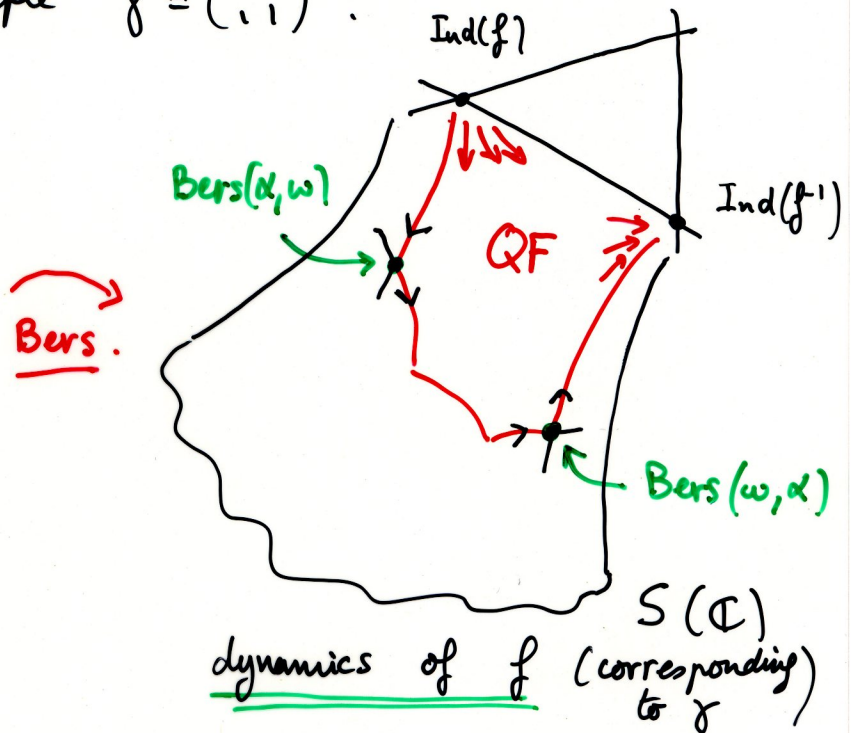 γ = (1 1) .
Ind(f)
Bers(α,ω)
Ind(f⁻¹)
QF
Bers.
Bers(ω,α)
S(ℂ)
dynamics of f (corresponding
to γ)